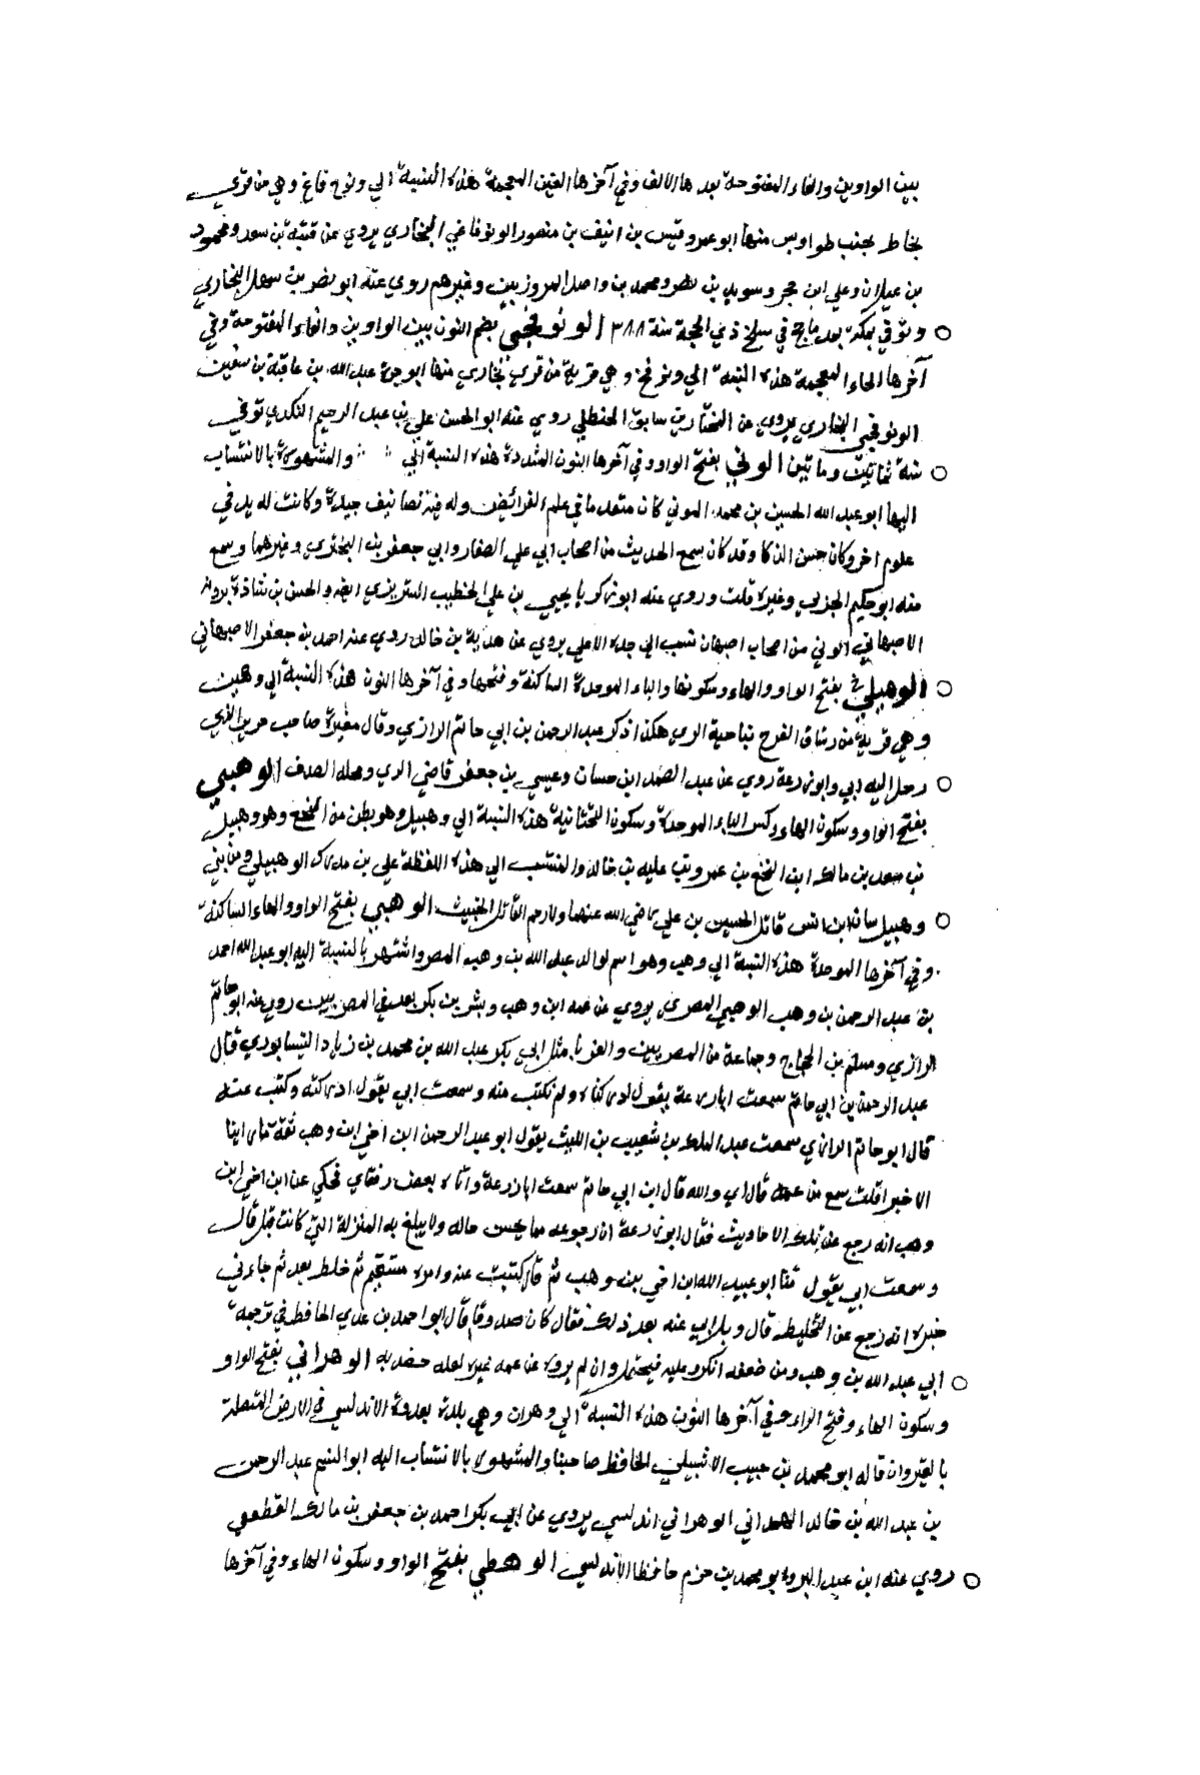 بين الواوين والفاء المفتوحة بعدها الالف وفي آخرها الغين المعجمة هذه النسبة الي ونوفاغ وهي من قري
بخارا بجنب طواويس منها ابو عمرو قيس بن انيف بن منصور الونوفاغي البخاري يروي عن قتيبة بن سعد ومحمود
بن غيلان وعلي ابن حجر وسويد بن نصر ومحمد بن واصل المروزيين وغيرهم روي عنه ابو نصر بن سهل البخاري
وتوفي بمكة بعد ما حج في سلخ ذي الحجة سنة ٣٨٨ الونوفخي بضم النون بين الواوين والفاء المفتوحة وفي
آخرها الخاء المعجمة هذه النسبة الي ونوفخ وهي قرية من قري بخاري منها ابو عبد الله بن عاقبة بن سفين
الونوفخي البخاري يروي عن المختار بن سابق الحنظلي روي عنه ابو الحسن علي بن عبد الرحيم الكندي توفي
سنة ثمانين وماتين الوني بفتح الواو وفي آخرها النون المشددة هذه النسبة الي والمشهورة بالانتساب
اليها ابو عبد الله الحسين بن محمد الوني كان متقدما في علم الفرائض وله فيه تصانيف جيدة وكانت له يد في
علوم اخر وكان حسن الذكا وقد كان سمع الحديث من اصحاب ابي علي الصفار وابي جعفر بن البختري وغيرهما وسمع
منه ابو حكيم الخبري وغيره قلت وروي عنه ابو زكريا يحيي بن علي الخطيب التبريزي ايضا والحسن بن شاذة بن
الاصبهاني الوني من اصحاب اصبهان نسب الي جده الاعلي يروي عن هدبة بن خالد روي عنه احمد بن جعفر الاصبهاني
الوهبني بفتح الواو والهاء وسكونها والباء الموحدة الساكنة وفتحها وفي آخرها النون هذه النسبة الي وهبن
وهي قرية من رستاق الفرج بناحية الري هكذا ذكر عبد الرحمن بن ابي حاتم الرازي وقال مغيرة صاحب جرير الذي
رحل اليه ابي وابو زرعة روي عن عبد الصمد ابن حسان وعيسي بن جعفر قاضي الري ومحله الصدق الوهبي
بفتح الواو وسكون الهاء وكسر الباء الموحدة وسكون التحتانية هذه النسبة الي وهبيل وهو بطن من النخع وهو وهبيل
بن سعد بن مالك ابن النخع بن عمرو بن عليه بن خالد والمنتسب الي هذه اللفظة علي بن مدرك الوهبيلي ومن بني
وهبيل سنان ابن انس قاتل الحسين بن علي رضي الله عنهما ولا رحم القاتل الخبيث الوهبي بفتح الواو والهاء الساكنة
وفي آخرها الموحدة هذه النسبة الي وهب وهو اسم لوالد عبد الله بن وهب المصر واشتهر بالنسبة اليه ابو عبد الله احمد
بن عبد الرحمن بن وهب الوهبي المصري يروي عن عمه ابن وهب وبشر بن بكر بعد في المصريين روي عنه ابو حاتم
الرازي ومسلم بن الحجاج وجماعة من المصريين والغربا مثل ابي بكر عبد الله بن محمد بن زياد النيسابوري قال
عبد الرحمن بن ابي حاتم سمعت ابا زرعة يقول ادركناه ولم نكتب عنه وسمعت ابي يقول ادركته وكتب عنه
قال ابو حاتم الرازي سمعت عبد الملك بن شعيب بن الليث يقول ابو عبد الرحمن ابن اخي ابن وهب ثقة ما راينا
الا خيرا قلت سمع من عمه قال اي والله قال ابن ابي حاتم سمعت ابا زرعة واتاه بعض رفقاي فحكي عن ابن اخي ابن
وهب انه رجع عن تلك الاحاديث فقال ابو زرعة ان رجوعه مما يحسن حاله ولا يبلغ به المنزلة التي كانت قبل قال
وسمعت ابي يقول ثنا ابو عبيد الله ابن اخي بن وهب ثم قال كتبت عنه وامره مستقيم ثم خلط بعد ثم جاءني
خبره انه رجع عن التخليط قال وسئل ابي عنه بعد ذلك فقال كان صدوقا قال ابو احمد بن عدي الحافظ في ترجمة
ابي عبد الله بن وهب ومن ضعفه انكر عليه فيحتمل وان لم يروه عن عمه غيره لعله خصه به الوهراني بفتح الواو
وسكون الهاء وفتح الراء وفي آخرها النون هذه النسبة الي وهران وهي بلدة بعدوة الاندلس في الارض المتصلة
بالقيروان قاله ابو محمد بن حبيب الاشبيلي الحافظ صاحبنا والمشهور بالانتساب اليه ابو القسم عبد الرحمن
بن عبد الله بن خالد الهمداني الوهراني اندلسي يروي عن ابي بكر احمد بن جعفر بن مالك القطيعي
روي عنه ابن عبد البر وابو محمد بن حزم حافظا الاندلس الوهطي بفتح الواو وسكون الهاء وفي آخرها